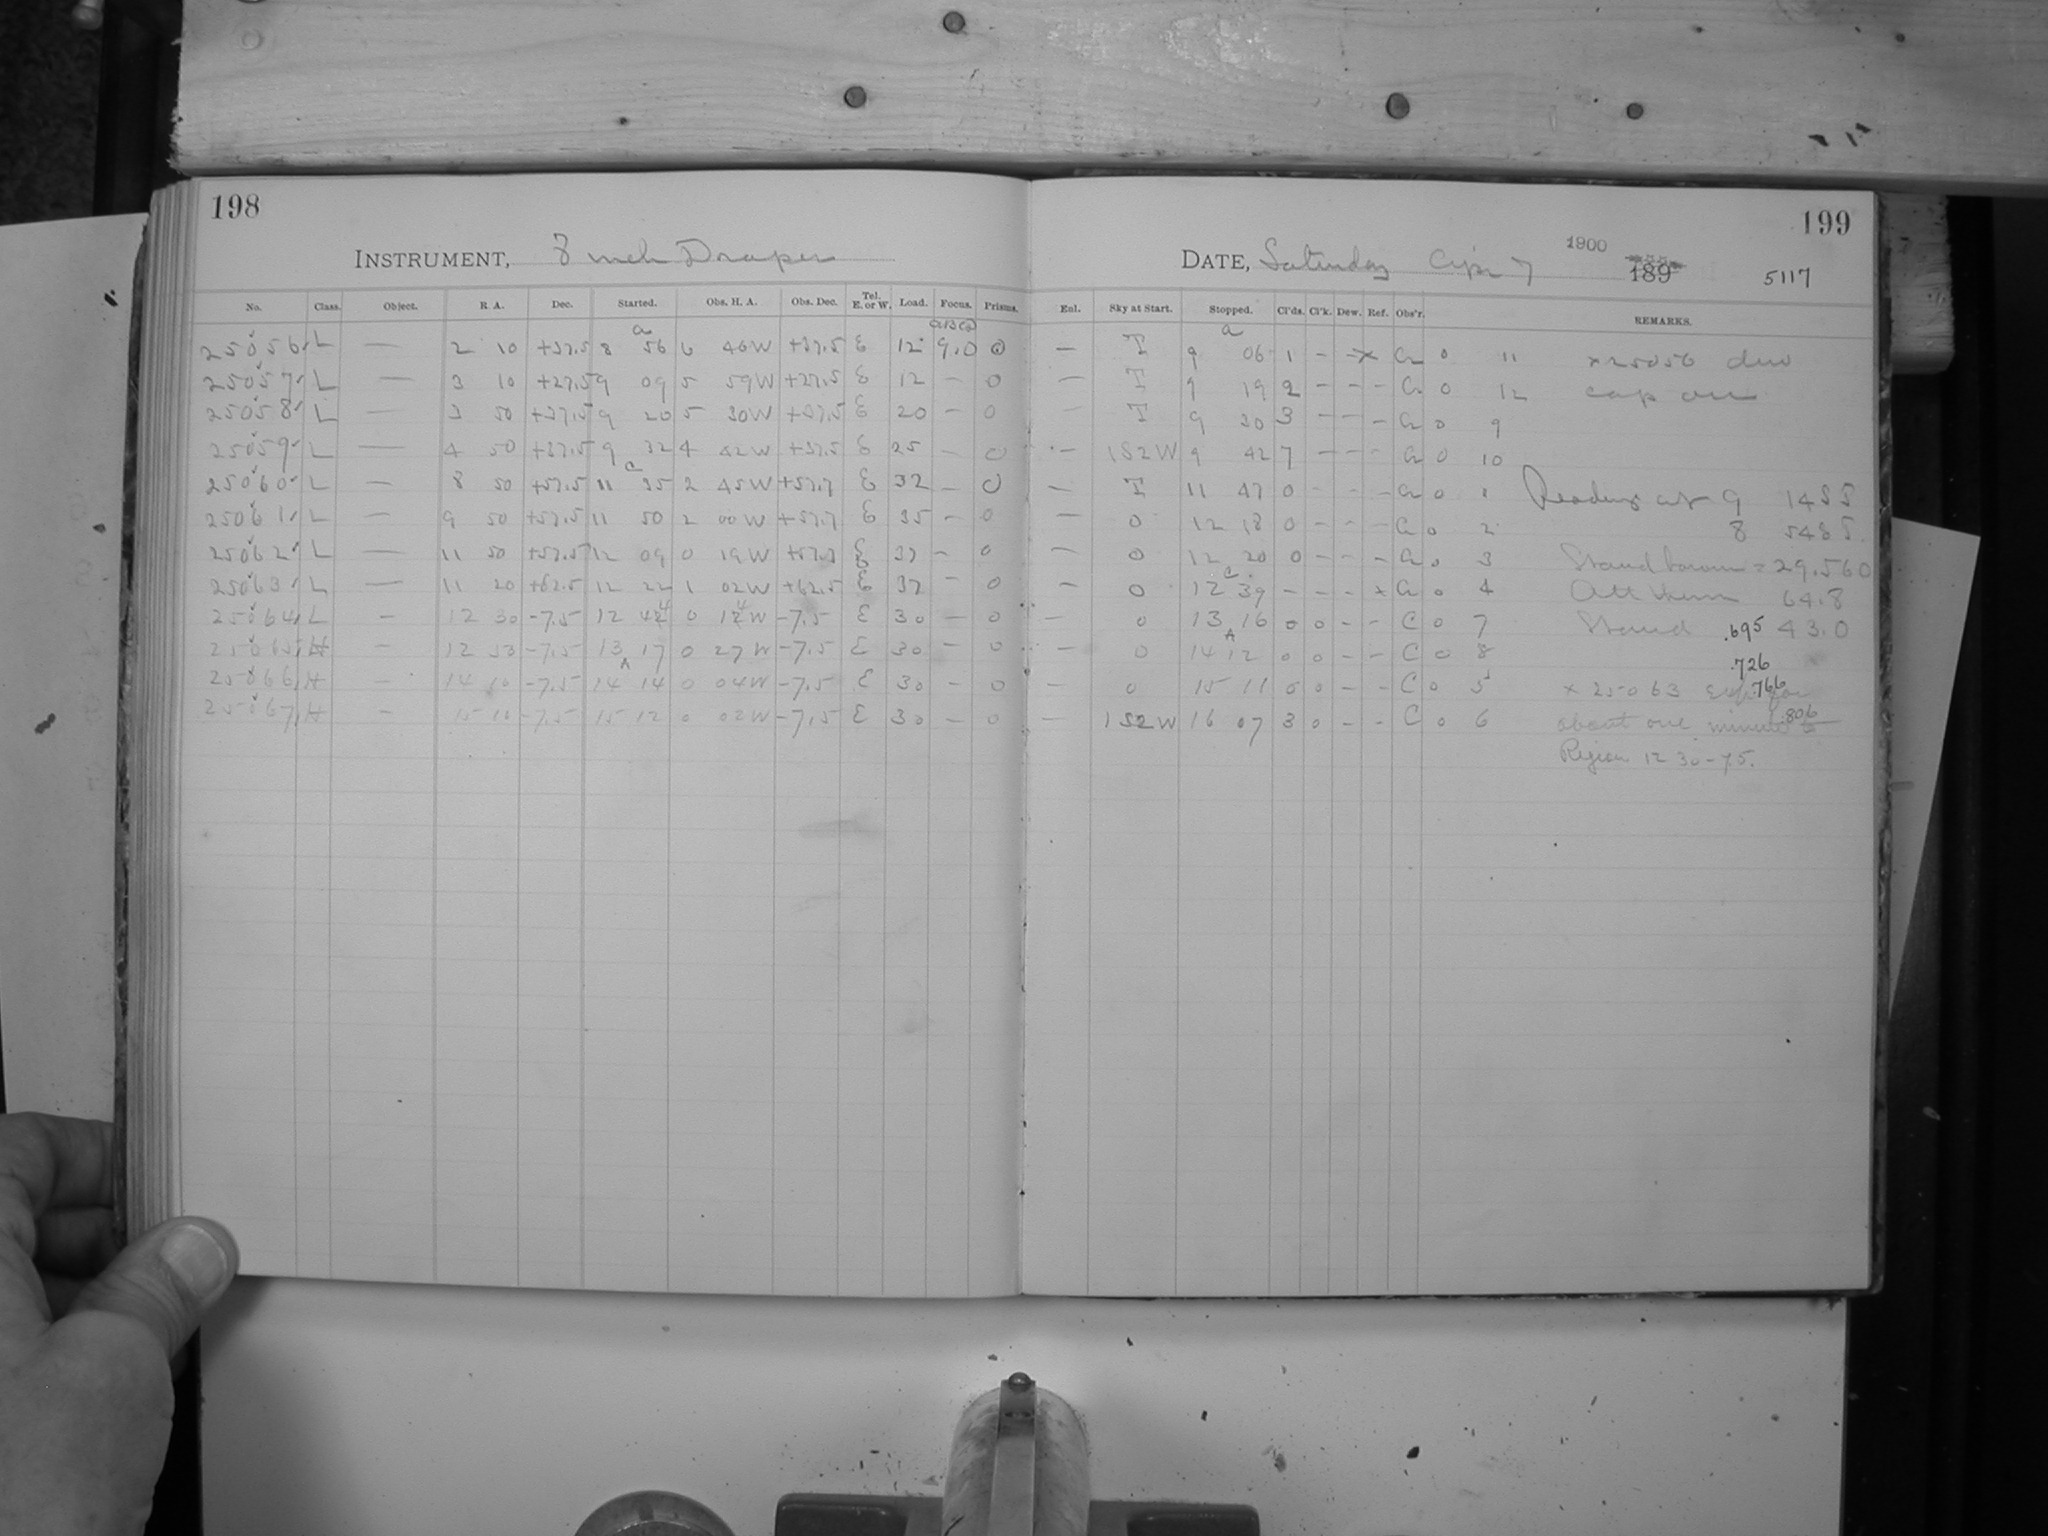 198
199
INSTRUMENT, 8 inch Draper
DATE, Saturday Apr 7 1900 189 5117
No. Class. Object. R. A. Dec. Started. Obs. H. A. Obs. Dec. Tel. E. or W. Load. Focus. Prisms. Enl. Sky at Start. Stopped. Cl'ds. Cl'k. Dew. Ref. Obs'r. REMARKS.
25056 L — 2 10 +37.5 8 56 6 46W +37.5 E 12 9.0 0 — T 9 06 1 - - x 0 11 x 25056 dew
25057 L — 3 10 +27.5 9 09 5 59W +27.5 E 12 - 0 — T 9 19 2 - - - 0 12 cap on
25058 L — 3 50 +37.5 9 20 5 30W +37.5 E 20 - 0 — T 9 30 3 - - - 0 9
25059 L — 4 50 +37.5 9 32 4 42W +37.5 E 25 - 0 — 1S2W 9 42 7 - - - 0 10
25060 L — 8 50 +57.5 11 35 2 45W +57.7 E 32 - 0 — T 11 47 0 - - - 0 1 Reading 9 1455
25061 L — 9 50 +57.5 11 50 2 00W +57.7 E 35 - 0 — 0 12 18 0 - - - 0 2 8 5485
25062 L — 11 50 +57.5 12 09 0 19W +57.7 E 37 - 0 — 0 12 20 0 - - - 0 3 Stand barom = 29.560
25063 L — 11 20 +62.5 12 22 1 02W +62.5 E 37 - 0 — 0 12 39 - - - x 0 4 Att therm 64.8
25064 L — 12 30 -7.5 12 44 0 14W -7.5 E 30 - 0 — 0 13 16 0 0 - - C 0 7 Stand .695 43.0
25065 H — 12 53 -7.5 13 17 0 27W -7.5 E 30 - 0 — 0 14 12 0 0 - - C 0 8 .726
25066 H — 14 10 -7.5 14 14 0 04W -7.5 E 30 - 0 — 0 15 11 0 0 - - C 0 5 x 25063 .766
25067 H — 15 10 -7.5 15 12 0 02W -7.5 E 30 - 0 — 1S2W 16 07 3 0 - - C 0 6 about one minute .806
Region 12 30 -7.5.